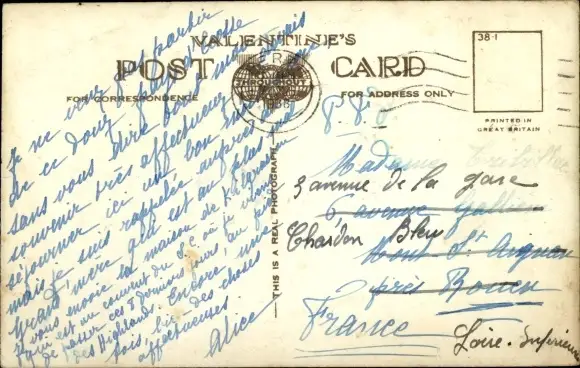 VALENTINE'S
POST CARD
FOR CORRESPONDENCE
FOR ADDRESS ONLY
38-1
PRINTED IN
GREAT BRITAIN
THIS IS A REAL PHOTOGRAPH
Je ne veux pas partir
de ce doux pays
sans vous dire
souvenir très affectueux
séjourner ici un bon
mais je suis rappelée auprès de
grand'mère qui est au plus mal
vous envoie la maison de
qui est un couvent du S. C. où je viens
de passer ces derniers jours au
des Highlands. Encore une
fois bien des choses
affectueuses
Alice
Madame
3 avenue de la gare
6 avenue Gallieni
Chardon Bleu
Mont St Aignan
près Rouen
France
Loire-Inférieure